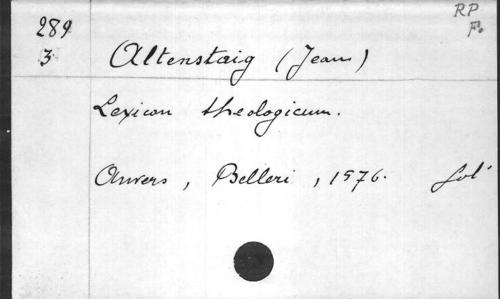 289
3
RP
F.
Altenstaig (Jean)
Lexicon theologicum.
Anvers, Belleri, 1576. fol°